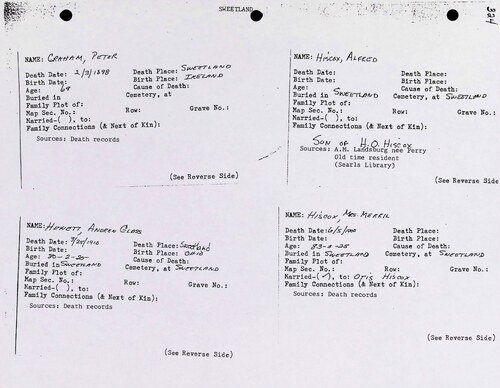 SWEETLAND
324
NAME: GRAHAM, PETER
Death Date: 2/3/1898 Death Place: SWEETLAND
Birth Date: Birth Place: IRELAND
Age: 64 Cause of Death:
Buried in Cemetery, at
Family Plot of:
Map Sec. No.: Row: Grave No.:
Married-( ), to:
Family Connections (& Next of Kin):
Sources: Death records
(See Reverse Side)
NAME: HISCOX, ALFRED
Death Date: Death Place:
Birth Date: Birth Place:
Age: Cause of Death:
Buried in SWEETLAND Cemetery, at SWEETLAND
Family Plot of:
Map Sec. No.: Row: Grave No.:
Married-( ), to:
Family Connections (& Next of Kin):
SON OF H.O. HISCOX
Sources: A.M. Landsburg nee Perry
Old time resident
(Searls Library)
(See Reverse Side)
NAME: HEWETT, ANDREW
Death Date: 7/25/1910 Death Place: SWEETLAND
Birth Date: Birth Place: OHIO
Age: 80-2-25 Cause of Death:
Buried in SWEETLAND Cemetery, at SWEETLAND
Family Plot of:
Map Sec. No.: Row: Grave No.:
Married-( ), to:
Family Connections (& Next of Kin):
Sources: Death records
(See Reverse Side)
NAME: HISCOX, MRS MERRIL
Death Date: 6/5/ Death Place:
Birth Date: Birth Place:
Age: 83-2-25 Cause of Death:
Buried in SWEETLAND Cemetery, at SWEETLAND
Family Plot of:
Map Sec. No.: Row: Grave No.:
Married-(✓), to: OTIS HISCOX
Family Connections (& Next of Kin):
Sources: Death records
(See Reverse Side)